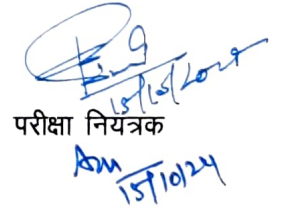 15/10/2024
परीक्षा नियत्रक
15/10/24